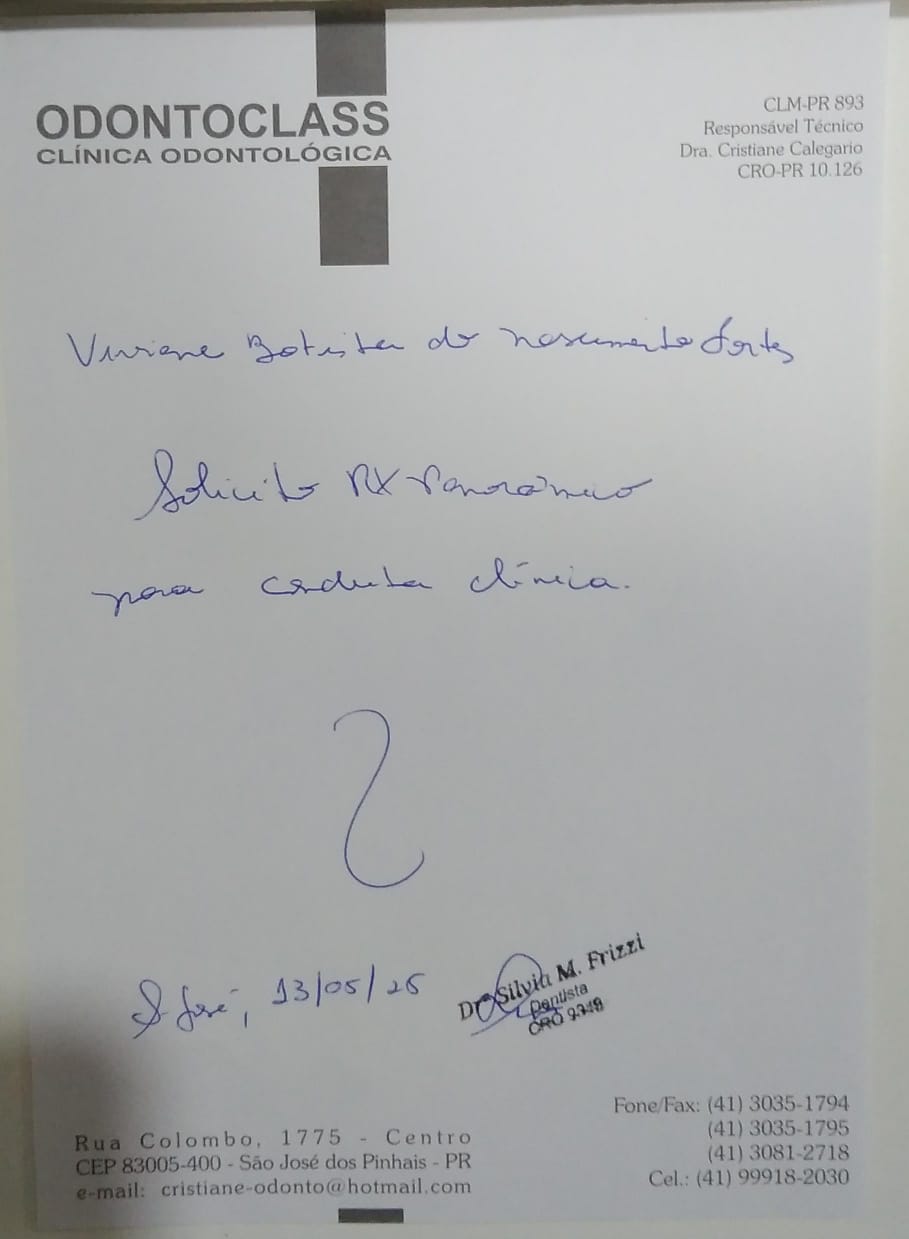 ODONTOCLASS
CLÍNICA ODONTOLÓGICA
CLM-PR 893
Responsável Técnico
Dra. Cristiane Calegario
CRO-PR 10.126
Viviane Batista do Nascimento Fortes
Solicito RX Panorâmico
para conduta clínica.
S José, 13/05/25
Silvia M. Frizzi
Dentista
CRO
Rua Colombo, 1775 - Centro
CEP 83005-400 - São José dos Pinhais - PR
e-mail: cristiane-odonto@hotmail.com
Fone/Fax: (41) 3035-1794
(41) 3035-1795
(41) 3081-2718
Cel.: (41) 99918-2030